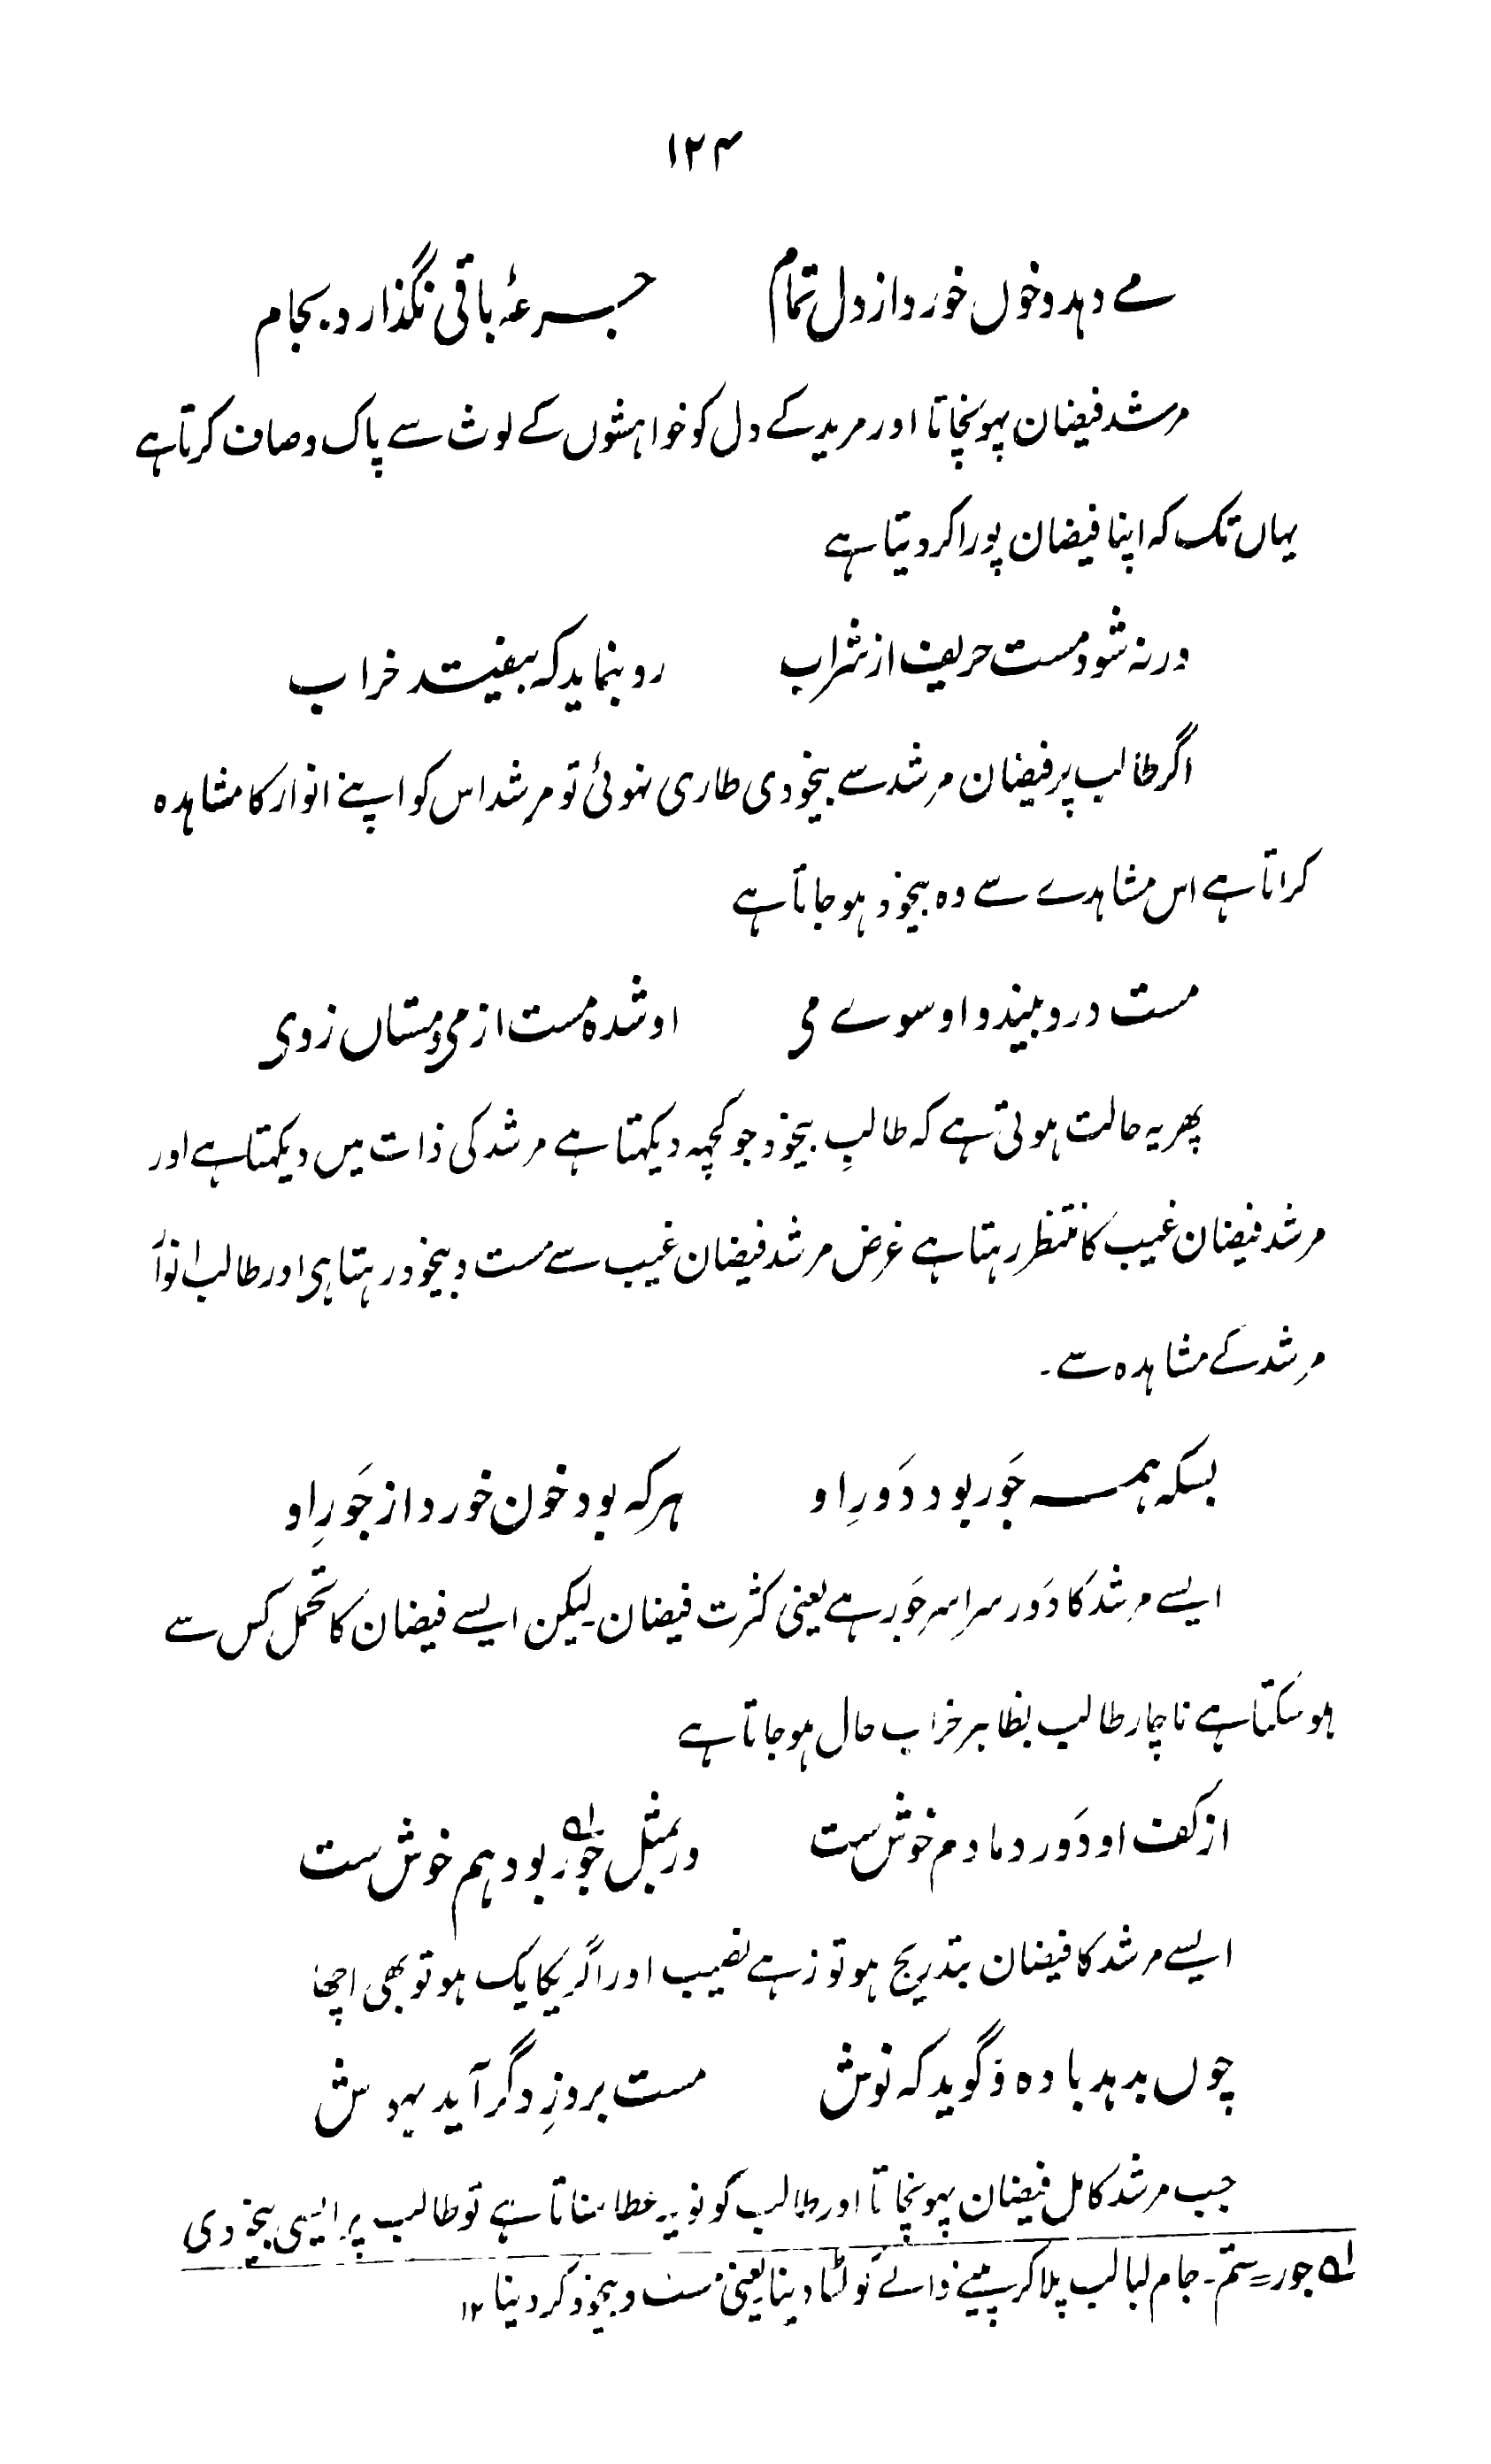 ۱۲۴
مے دہد و خوں خورد از دل تمام جرعۂ باقی نگذارد بجام
مرشد فیضان پہونچاتا اور مرید کے دل کو خواہشوں کے لوث سے پاک و صاف کرتا ہے
یہاں تک کہ اپنا فیضان پورا کر دیتا ہے
ورنہ شود مست حریف از شراب رو بنماید کہ بیفتد خراب
اگر طالب پر فیضان مرشد سے بیخودی طاری نہوئی تو مرشد اس کو اپنے انوار کا مشاہدہ
کراتا ہے اس مشاہدے سے وہ بیخود ہو جاتا ہے
مست درو بیند و او سوے می او شدہ مست از می و مستاں زوی
پھر یہ حالت ہوتی ہے کہ طالبِ بیخود جو کچہہ دیکہتا ہے مرشد کی ذات میں دیکہتا ہے اور
مرشد فیضان غیب کا منتظر رہتا ہے غرض مرشد فیضان غیب سے مست و بیخود رہتا ہی اور طالب انوار
مرشد کے مشاہدہ سے۔
بسکہ ہمہ جَور بود دَورِ او ہر کہ بود خون خورد از جَورِ او
ایسے مرشد کا دَور سراسر جَور ہے یعنی کثرت فیضان۔ لیکن ایسے فیضان کا تحمل کس سے
ہو سکتا ہے ناچار طالب بظاہر خراب حال ہو جاتا ہے
از کف او دَور دمادم خوش ست در بمثل جَور لہ بود ہم خوش ست
ایسے مرشد کا فیضان بتدریج ہو تو زہے نصیب اور اگر یکایک ہو تو بھی اچھا
چوں بدہد بادہ و گوید کہ نوش مست بروزِ دگر آید بہوش
جب مرشد کامل فیضان پہونچاتا اور طالب کو نوید عطا سناتا ہے تو طالب پر ایسی بیخودی
لہ جور = ستم۔ جام لبالب پلا کر پینے والے کو لٹا دینا یعنی مست و بیخود کر دینا ۱۲